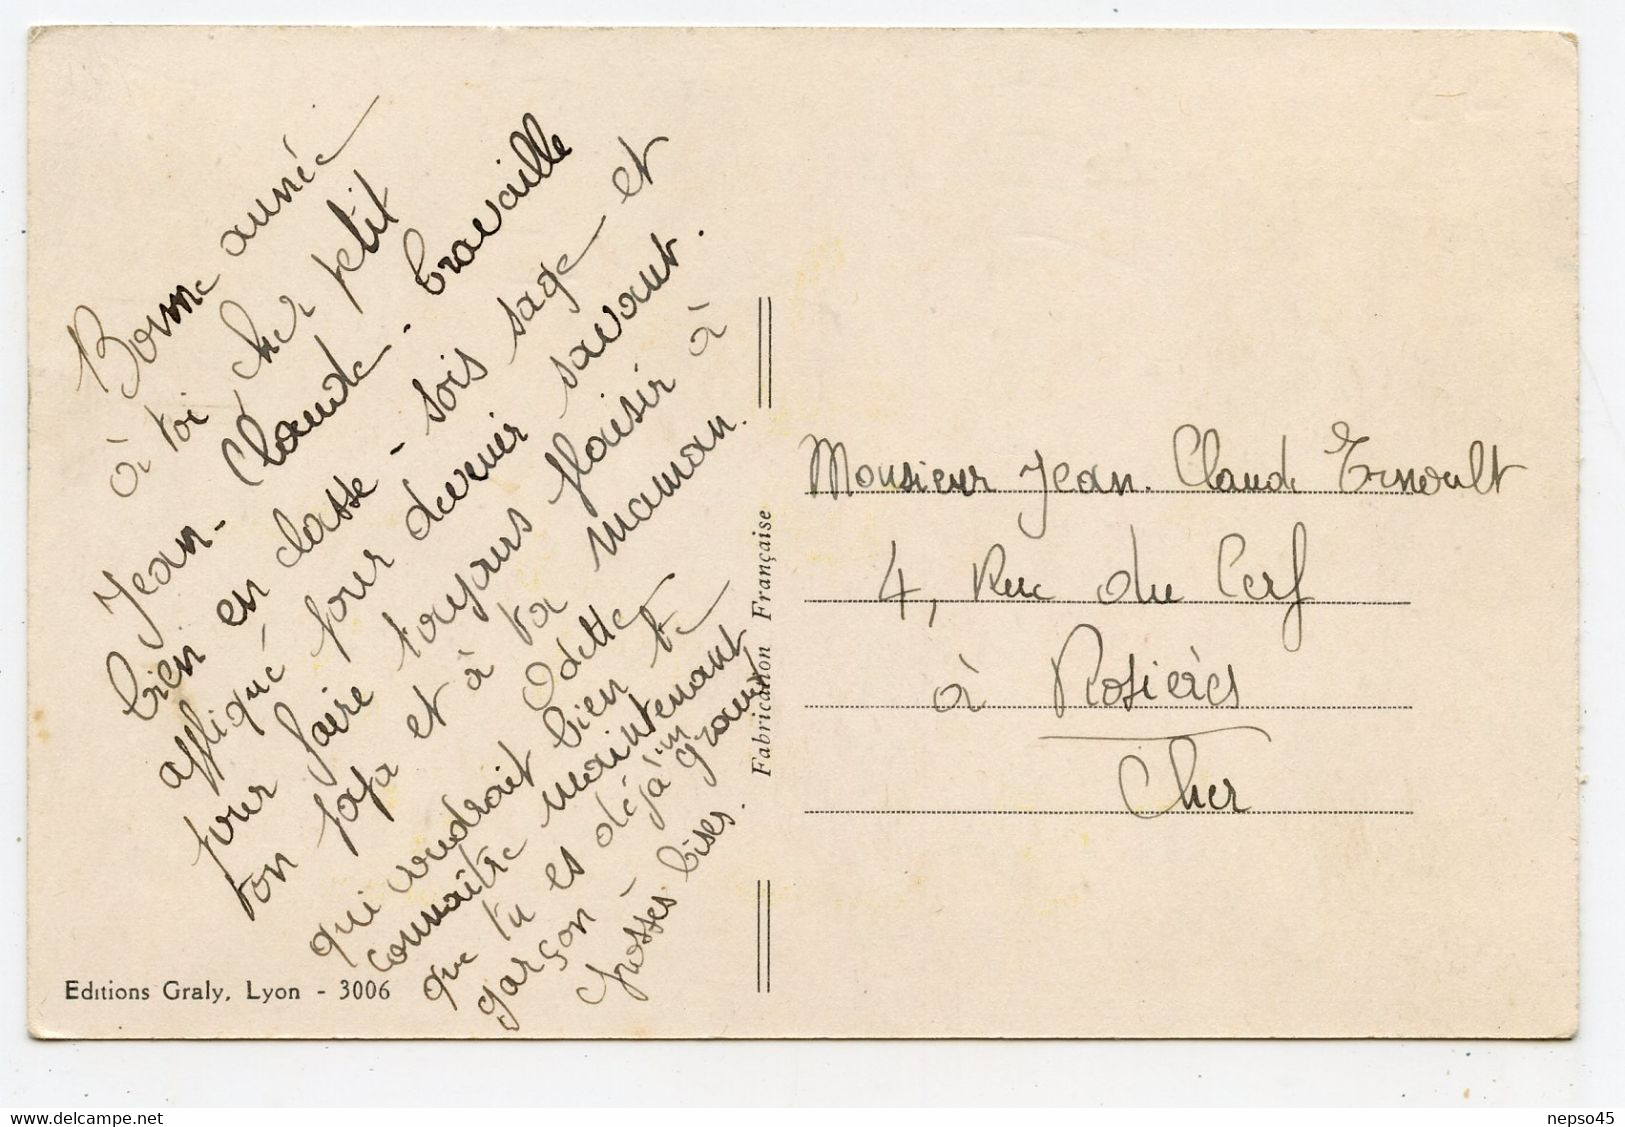 Bonne année
à toi cher petit
Jean-Claude. travaille
bien en classe - sois sage et
appliqué pour devenir savant.
pour faire toujours plaisir à
ton papa et à ta maman.
Odette
qui voudrait bien te
connaître maintenant
que tu es déjà un grand
garçon
Grosses bises.
Editions Graly, Lyon - 3006
Fabrication Française
Monsieur Jean-Claude Ernoult
4, Rue du Cerf
à Rosières
Cher
http://www.delcampe.net
nepso45